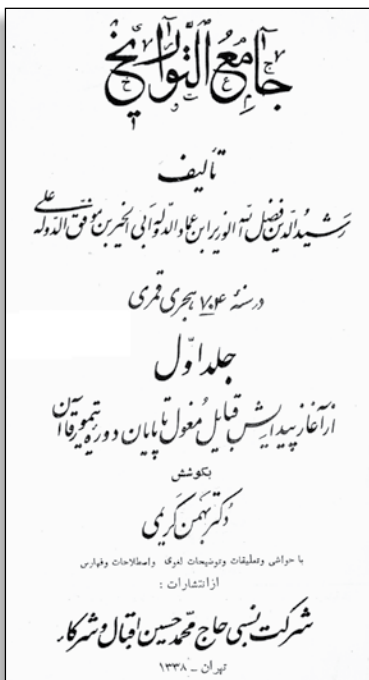 جامع التواریخ
تألیف
رشیدالدین فضل الله الوزیر ابن عمادالدوله ابی الخیر بن موفق الدوله علی
در سنهٔ ۷۰۴ هجری قمری
جلد اول
از آغاز پیدایش قبایل مغول تا پایان دورهٔ تیمور قاآن
بکوشش
دکتر بهمن کریمی
با حواشی وتعلیقات وتوضیحات لغوی واصطلاحات وفهارس
از انتشارات :
شرکت نسبی حاج محمد حسین اقبال و شرکاء
تهران ـ ۱۳۳۸